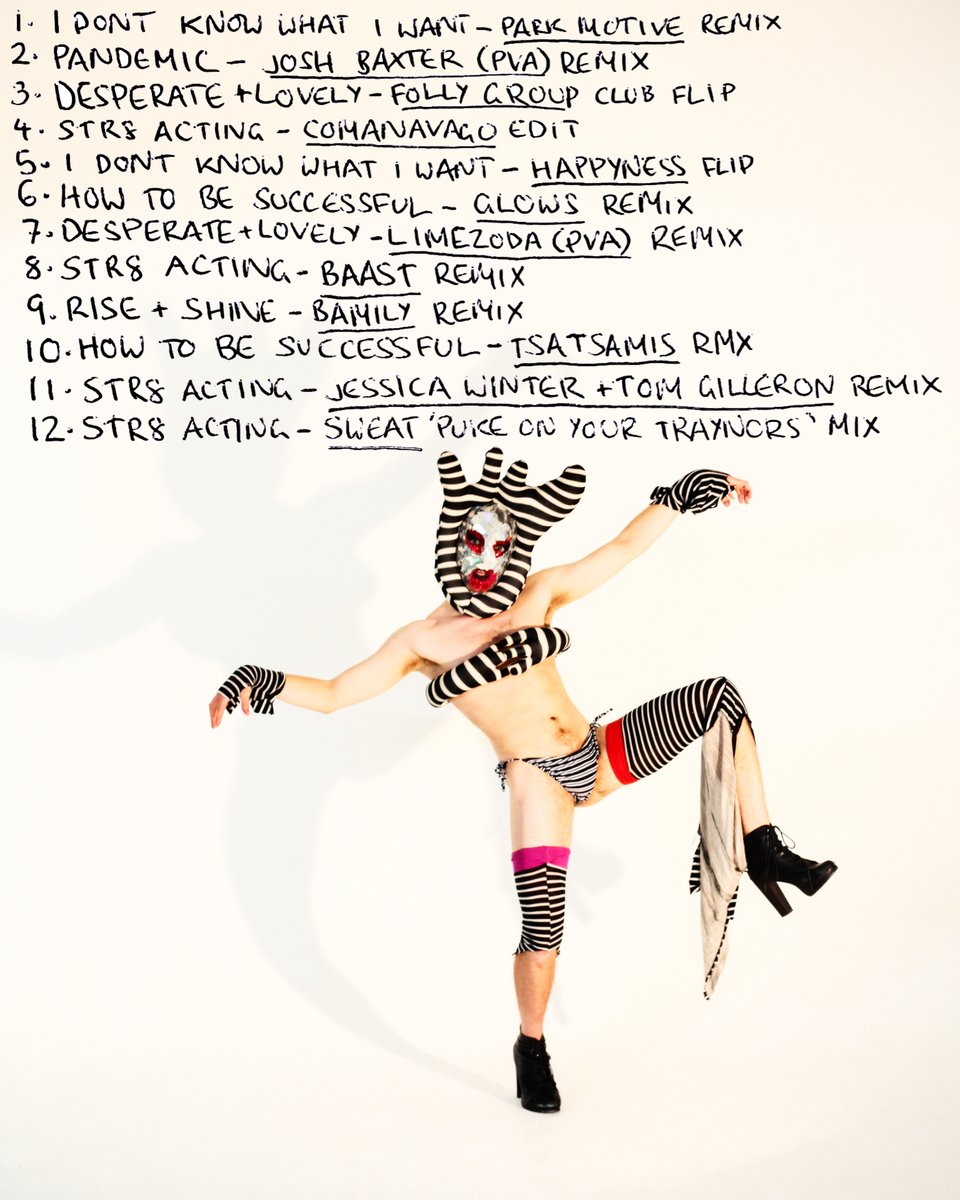 1. I DONT KNOW WHAT I WANT - PARK MOTIVE REMIX
2. PANDEMIC - JOSH BAXTER (PVA) REMIX
3. DESPERATE + LOVELY - FOLLY GROUP CLUB FLIP
4. STR8 ACTING - COMANAVAGO EDIT
5. I DONT KNOW WHAT I WANT - HAPPYNESS FLIP
6. HOW TO BE SUCCESSFUL - GLOWS REMIX
7. DESPERATE + LOVELY - LIMEZODA (PVA) REMIX
8. STR8 ACTING - BAAST REMIX
9. RISE + SHINE - BAMILY REMIX
10. HOW TO BE SUCCESSFUL - TSATSAMIS RMX
11. STR8 ACTING - JESSICA WINTER + TOM GILLERON REMIX
12. STR8 ACTING - SWEAT 'PUKE ON YOUR TRAYNORS' MIX